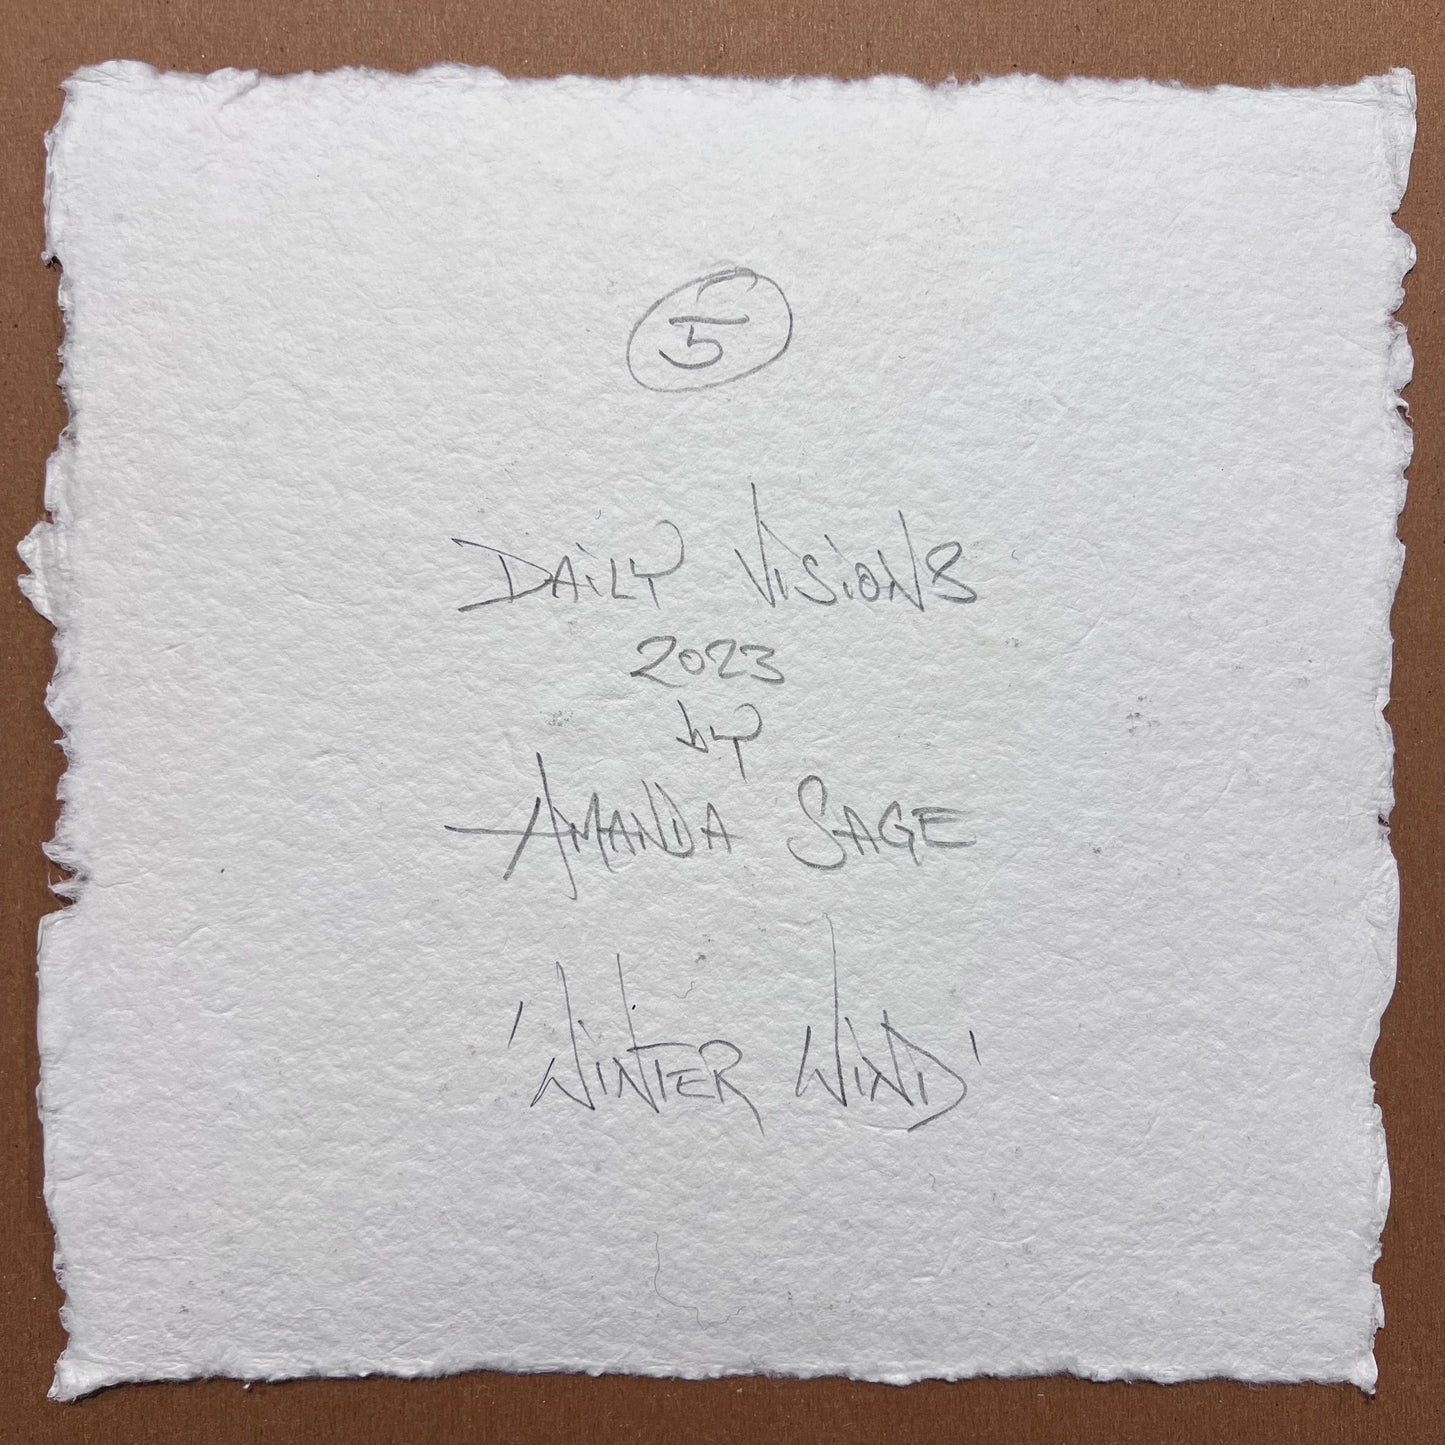 5
DAiLY ViSiONS
2023
by
AMANDA SAGE
'WiNTER WiND'